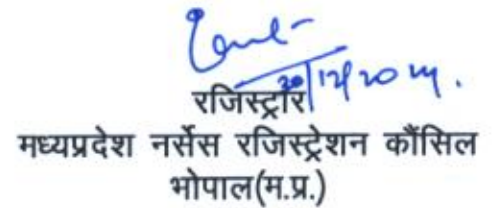 रजिस्ट्रार
मध्यप्रदेश नर्सेस रजिस्ट्रेशन कौंसिल
भोपाल(म.प्र.)